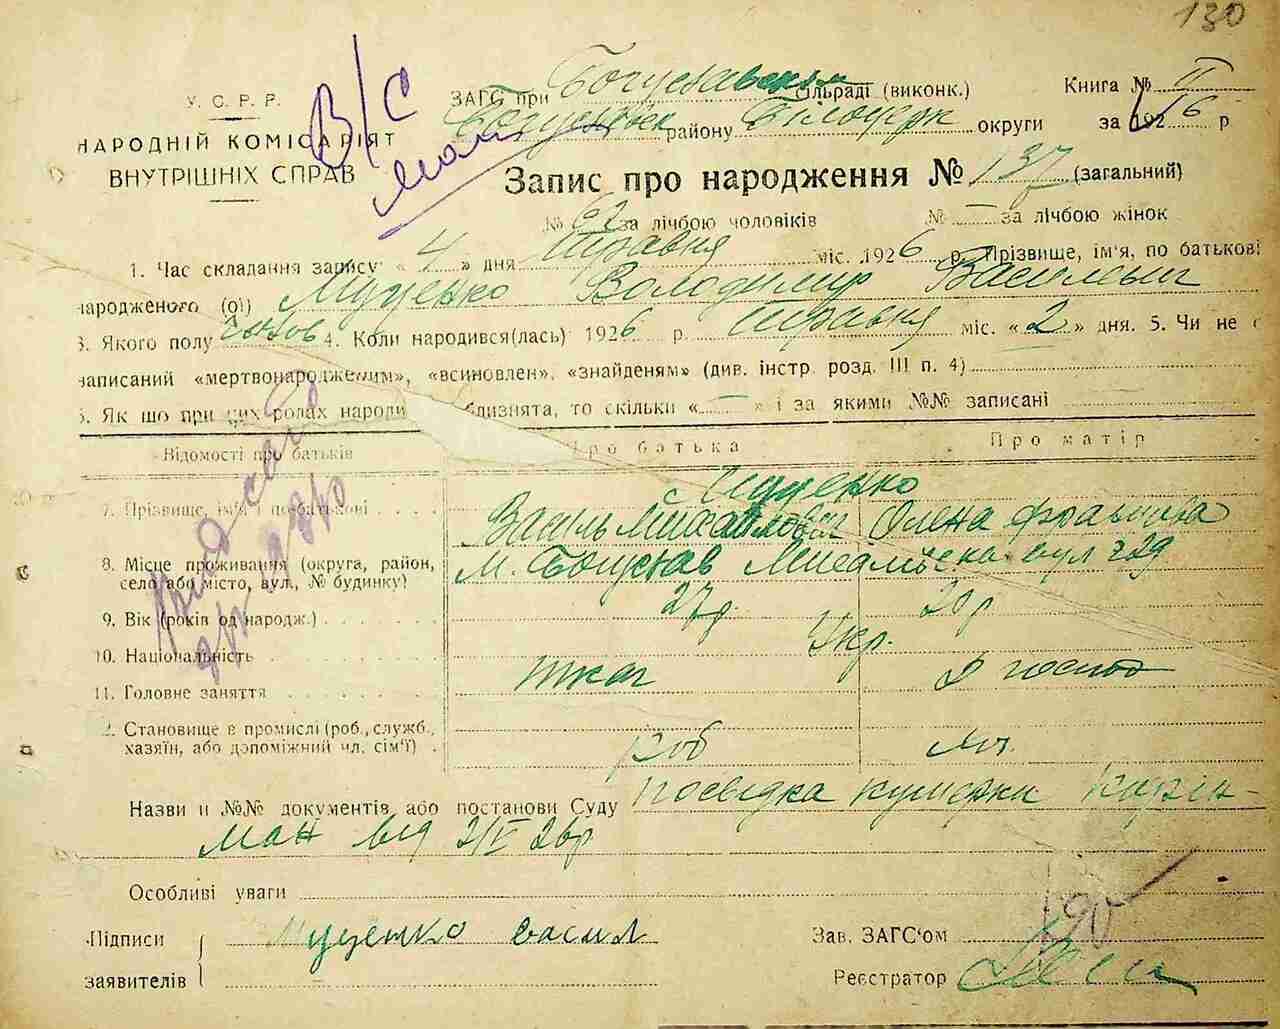 130
У. С. Р. Р.
НАРОДНІЙ КОМІСАРІЯТ
ВНУТРІШНІХ СПРАВ
В/С
ЗАГС при Богуславськ сільраді (виконк.)
району Білоцерк округи
Книга № II
за 1926 р
Запис про народження № 137 (загальний)
№ 62 за лічбою чоловіків № — за лічбою жінок
1. Час складання запису „ 4 „ дня травня міс. 1926 р. Прізвище, ім'я, по батькові
народженого (ої) Муценко Володимир Васильович
3. Якого полу чолов 4. Коли народився(лась) 1926 р. травня міс. «2» дня. 5. Чи не є
записаний «мертвонародженим», «всиновлен», «знайденям» (див. інстр. розд. III п. 4)
6. Як що при цих родах народи близнята, то скільки «—» і за якими №№ записані
Відомості про батьків Про батька Про матір
7. Прізвище, ім'я і по батькові Муценко
Василь Михайлович Олена
8. Місце проживання (округа, район,
село або місто, вул., № будинку) м. Богуслав вул 29
9. Вік (років од народж.) 27 р. 20 р
10. Національність Укр.
11. Головне заняття ткач д господ
12. Становище в промислі (роб., служб.,
хазяїн, або допоміжний чл. сім'ї) роб
Назви й №№ документів або постанови Суду посвідка кушерки
ман від 2/V 26 р
Особливі уваги
Підписи Муценко Васил
заявителів
Зав. ЗАГС'ом
Реєстратор